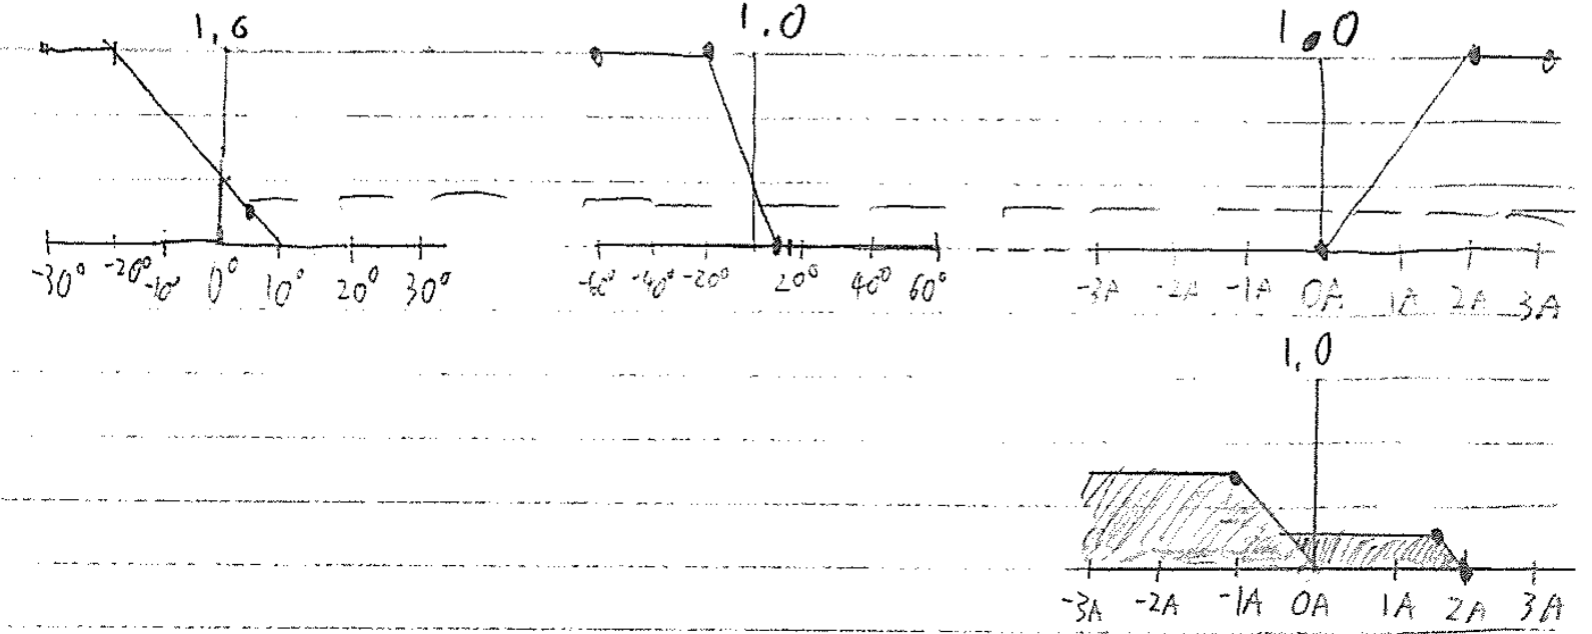 1,0 1.0 1.0
-30° -20° -10° 0° 10° 20° 30° -60° -40° -20° 20° 40° 60° -3A -2A -1A 0A 1A 2A 3A
1,0
-3A -2A -1A 0A 1A 2A 3A